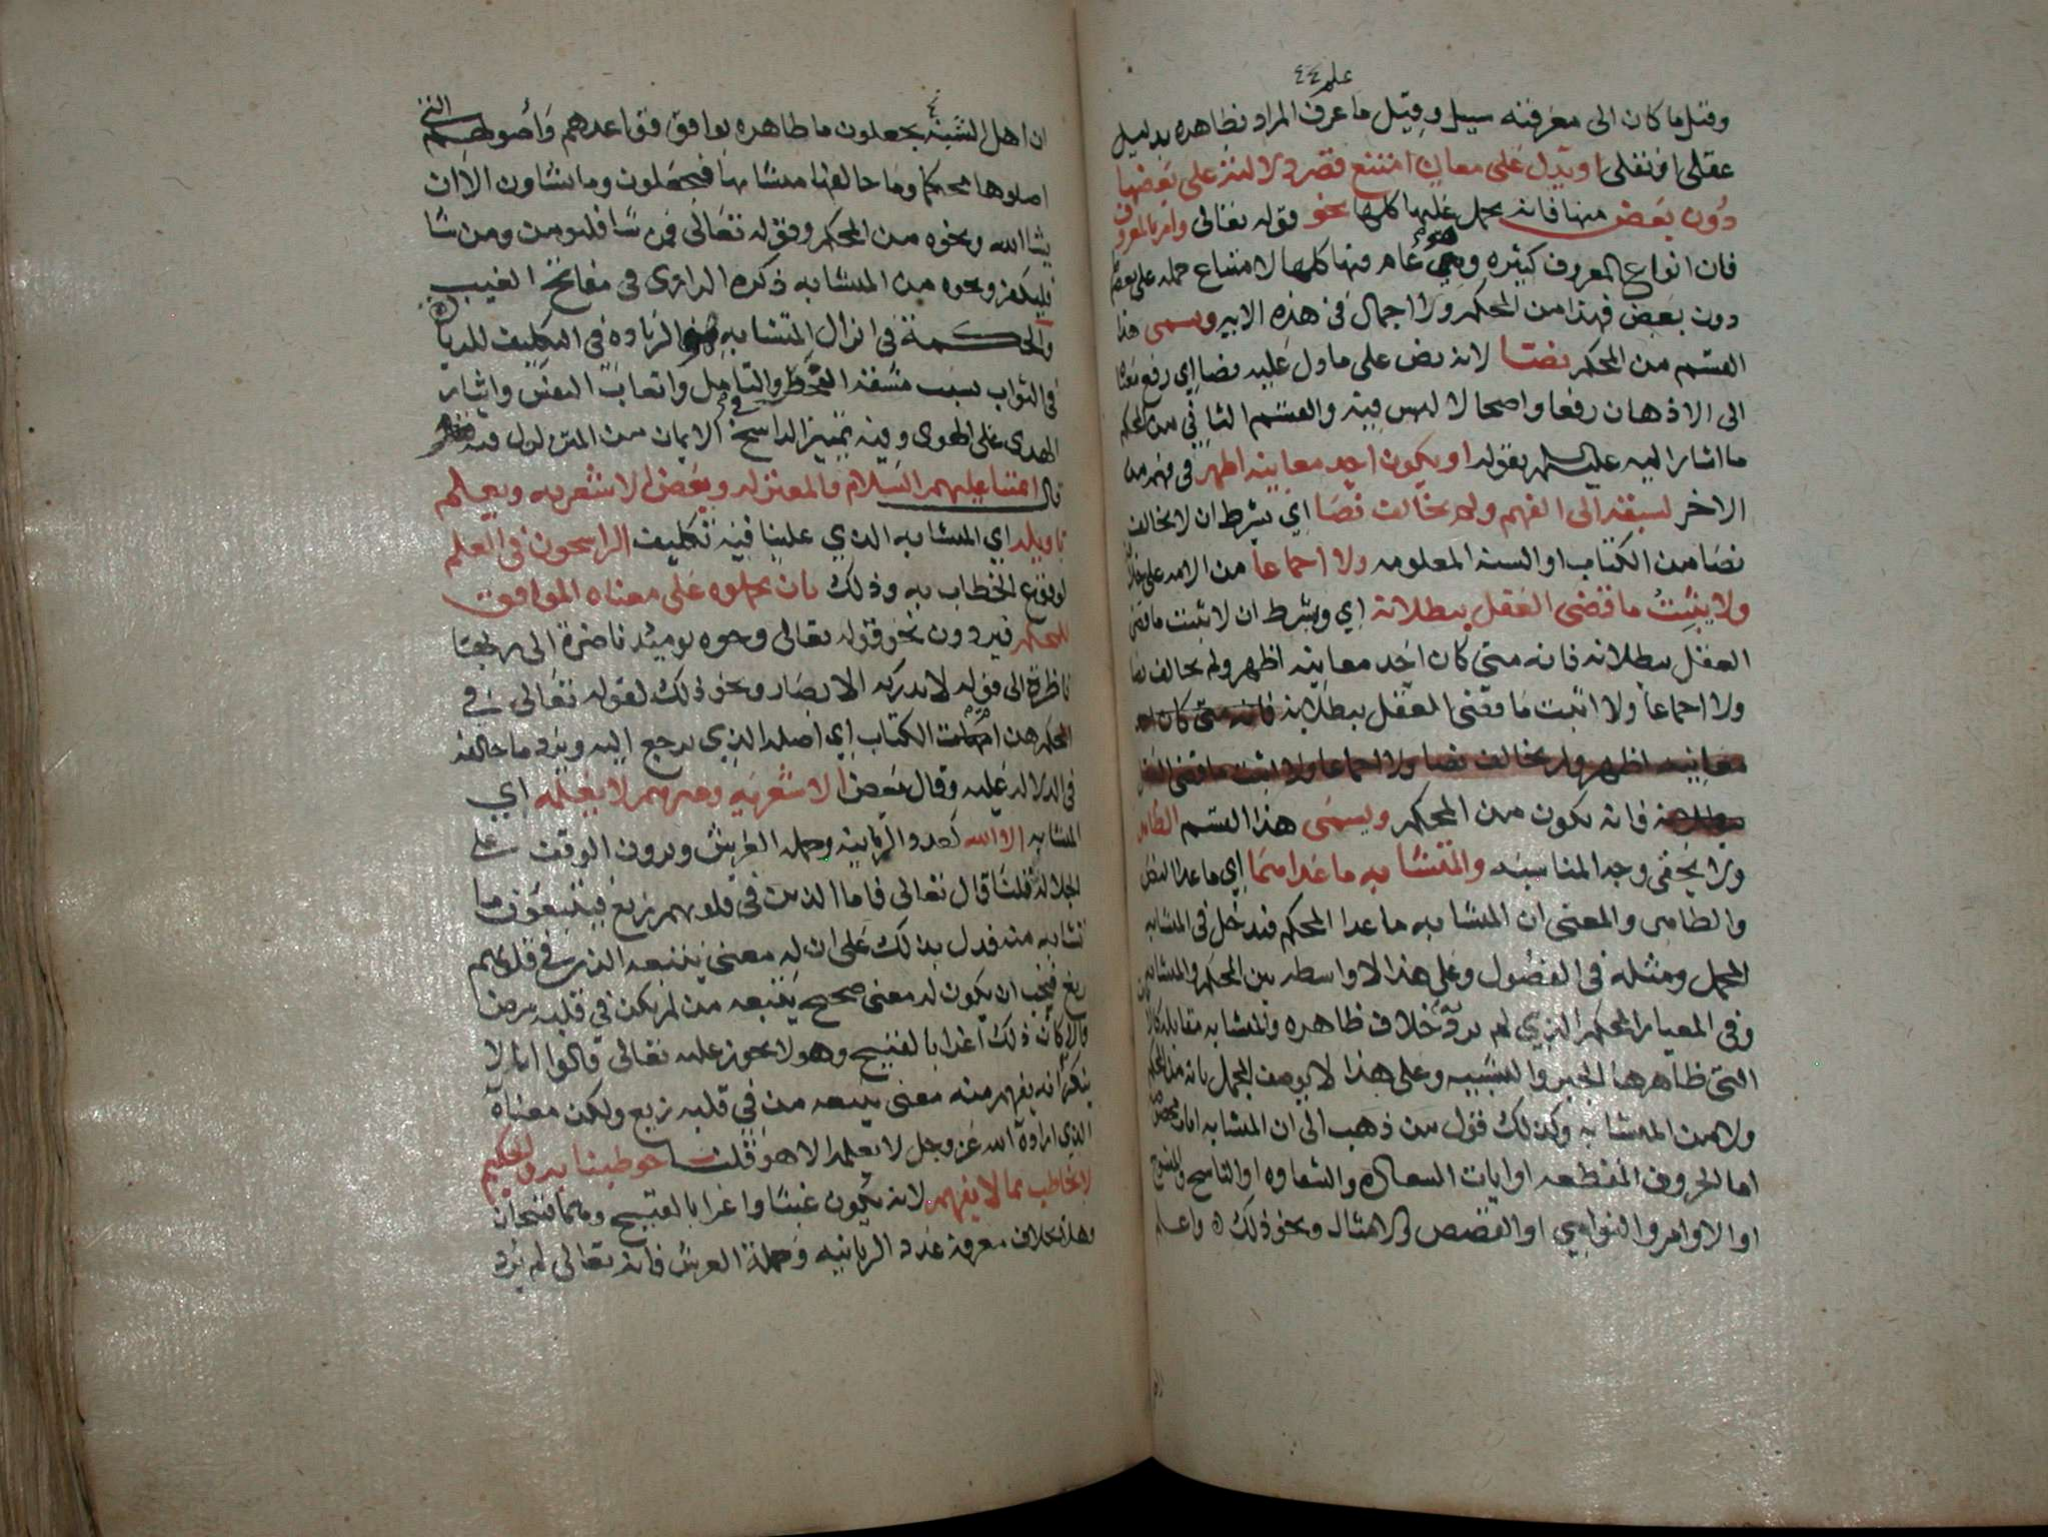 علم ٤٤
وقيل ما كان الى معرفته سبيل وقيل ما عرف المراد بظاهره بدليل
عقلي او نقلي او يدل على معان امتنع قصر دلالته على بعضها
دون بعض منها فانه يحمل عليها كلها نحو قوله تعالى وأمر بالمعروف
فان انواع المعروف كثيره وهو عام فيها كلها لامتناع حمله على بعض
دون بعض فهذا من المحكم ولا اجمال في هذه الايه ويسمى هذا
القسم من المحكم نصا لانه نص على ما دل عليه نصا اي رفع معناه
الى الاذهان رفعا واضحا لا لبس فيه والقسم الثاني من المحكم
ما اشار اليه عليلم بقوله او يكون احد معانيه اظهر في فهم من
الاخر لسبقه الى الفهم ولم يخالف نصا اي بشرط ان لا يخالف
نصا من الكتاب او السنه المعلومه ولا اجماعا من الامه على خلافه
ولا يثبت ما قضى العقل ببطلانه اي وبشرط ان لا يثبت ما قضى
العقل ببطلانه فانه متى كان احد معانيه اظهر ولم يخالف نصا
ولا اجماعا ولا اثبت ما قضى العقل ببطلانه فانه متى كان احد
معانيه اظهر ولم يخالف نصا ولا اجماعا ولا اثبت ما قضى العقل
ببطلانه فانه يكون من المحكم ويسمى هذا القسم الظاهر
ولا يخفى وجه المناسبه والمتشابه ما عداهما اي ما عدا النص
والظاهر والمعنى ان المتشابه ما عدا المحكم فيدخل في المتشابه
المجمل ومثله في الفصول وعلى هذا لا واسطه بين المحكم والمتشابه
وفي المعيار المحكم الذي لم يرد خلاف ظاهره والمتشابه مقابله كالايات
التي ظاهرها الجبر والتشبيه وعلى هذا لا يوصف المجمل بانه من المحكم
ولا من المتشابه وكذلك قول من ذهب الى ان المتشابه ايات مخصوصه
اما الحروف المقطعه او ايات السعاده والشقاوه او الناسخ والمنسوخ
او الاوامر والنواهي او القصص والامثال ونحو ذلك ه واعلم
ان اهل الشبه يجعلون ما ظاهره يوافق قواعدهم وأصولهم التي
اصلوها محكما وما خالفها متشابها فيجعلون وما تشاون الا ان
يشا الله ونحوه من المحكم وقوله تعالى فمن شا فليومن ومن شا
فليكفر ونحوه من المتشابه ذكره الرازي في مفاتح الغيب
والحكمة في انزال المتشابه هي الزياده في التكليف للزيادة
في الثواب بسبب مشقة النظر والتامل واتعاب النفس وايثار
الهدى على الهوى وفيه تمييز الراسخ في الايمان من المتزلزل فيه
قال ائمتنا عليهم السلام والمعتزله وبعض الاشعريه ويعلم
تاويله اي المتشابه الذي علينا فيه تكليف الراسخون في العلم
لوقوع الخطاب به وذلك بان يحملوه على معناه الموافق
للمحكم فيردون نحو قوله تعالى وجوه يوميذ ناضرة الى ربها
ناظرة الى قوله لا تدركه الابصار ونحو ذلك لقوله تعالى في
المحكم هن ام الكتاب اي اصله الذي يرجع اليه ويرد ما خالفه
في الدلاله عليه وقال بعض الاشعريه وغيرهم لا يعلمه اي
المتشابه الا الله كعدد الزبانيه وحمله العرش ويرون الوقف على
الجلاله قلنا قال تعالى فاما الذين في قلوبهم زيغ فيتبعون ما
تشابه منه فدل بذلك على ان له معنى يتبعه الذين في قلوبهم
زيغ فيجب ان يكون له معنى صحيح يتبعه من لم يكن في قلبه مرض
والا كان ذلك اغرا بالقبيح وهو لا يجوز عليه تعالى قالوا انا لا
ننكر انه يفهم منه معنى يتبعه من في قلبه زيغ ولكن معناه
الذي اراده الله عز وجل لا يعلمه الا هو قلنا خوطبنا به والحكيم
لا يخاطب بما لا يفهم لانه يكون عبثا واغرا بالقبيح وهما قبيحان
وهذا بخلاف معرفة عدد الزبانيه وحملة العرش فانه تعالى لم يرد